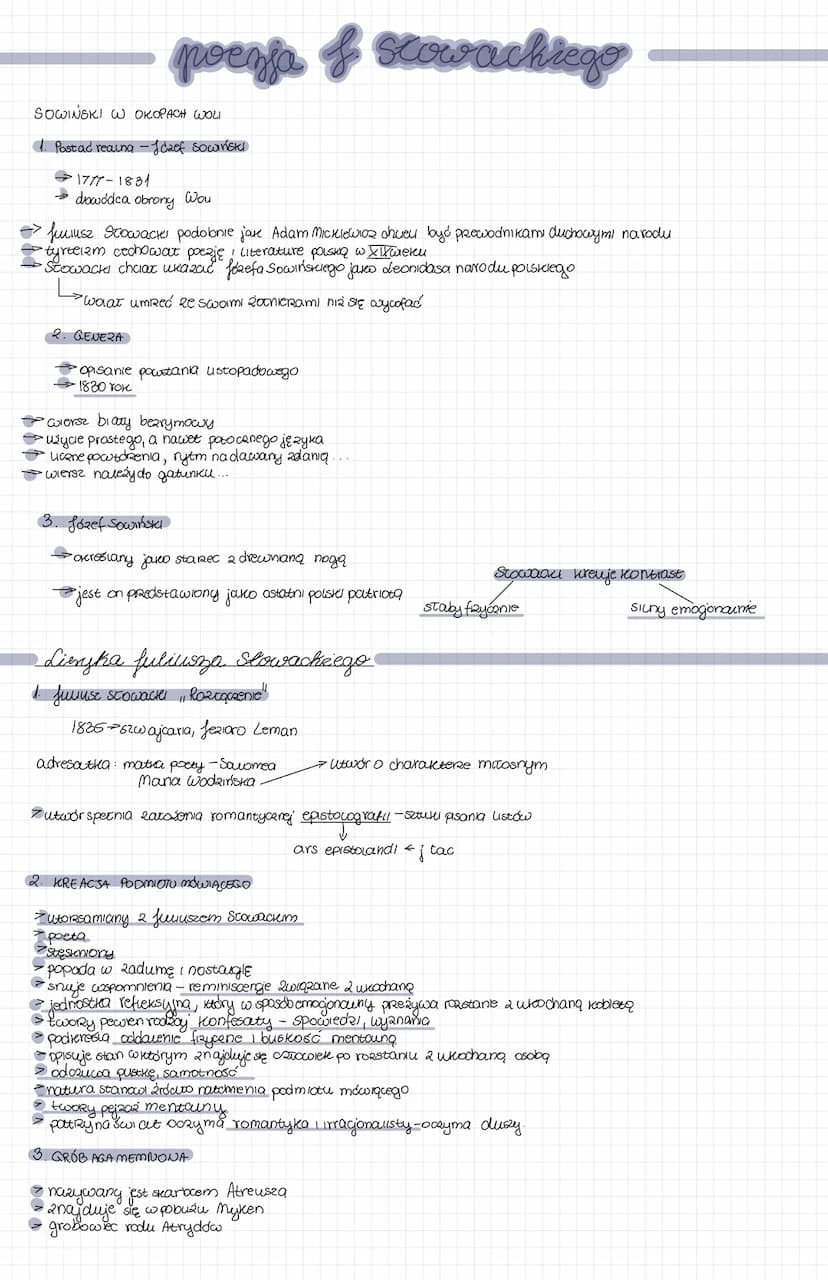 poezja J. Słowackiego
SOWIŃSKI W OKOPACH WOLI
1. Postać realna – Józef Sowiński
→ 1777 - 1831
→ dowódca obrony Woli
→ Juliusz Słowacki podobnie jak Adam Mickiewicz chcieli być przewodnikami duchowymi narodu
→ tyrteizm cechował poezję i literaturę polską w XIX wieku
→ Słowacki chciał ukazać Józefa Sowińskiego jako Leonidasa narodu polskiego
↳ wolał umrzeć ze swoimi żołnierzami niż się wycofać
2. GENEZA
→ opisanie powstania listopadowego
→ 1830 rok
→ wiersz biały bezrymowy
→ użycie prostego, a nawet potocznego języka
→ liczne powtórzenia, rytm nadawany zdanią ...
→ wiersz należy do gatunku ...
3. Józef Sowiński
→ określany jako starzec z drewnianą nogą
→ jest on przedstawiony jako ostatni polski patriota
Słowacki kreuje kontrast
słaby fizycznie silny emocjonalnie
Liryka Juliusza Słowackiego
1. Juliusz Słowacki „Rozłączenie"
1835 → szwajcaria, Jezioro Leman
adresatka: matka poety – Salomea
Maria Wodzińska → utwór o charakterze miłosnym
> utwór spełnia założenia romantycznej epistolografii – sztuki pisania listów
↓
ars epistolandi ← j łac
2. KREACJA PODMIOTU MÓWIĄCEGO
> utożsamiany z Juliuszem Słowackim
> poeta
> stęskniony
> popada w zadumę i nostalgię
> snuje wspomnienia – reminiscencje związane z ukochaną
> jednostka refleksyjna, który w sposób emocjonalny przeżywa rozstanie z ukochaną kobietą
> tworzy pewien rodzaj konfesaty – spowiedzi, wyznania
> podkreśla oddalenie fizyczne i bliskość mentalną
> opisuje stan w którym znajduje się człowiek po rozstaniu z ukochaną osobą
> odczuwa pustkę, samotność
> natura stanowi źródło natchnienia podmiotu mówiącego
> tworzy pejzaż mentalny
> patrzy na świat oczyma romantyka i irracjonalisty – oczyma duszy.
3. GRÓB AGAMEMNONA
> nazywany jest skarbcem Atreusza
> znajduje się w pobliżu Myken
> grobowiec rodu Atrydów